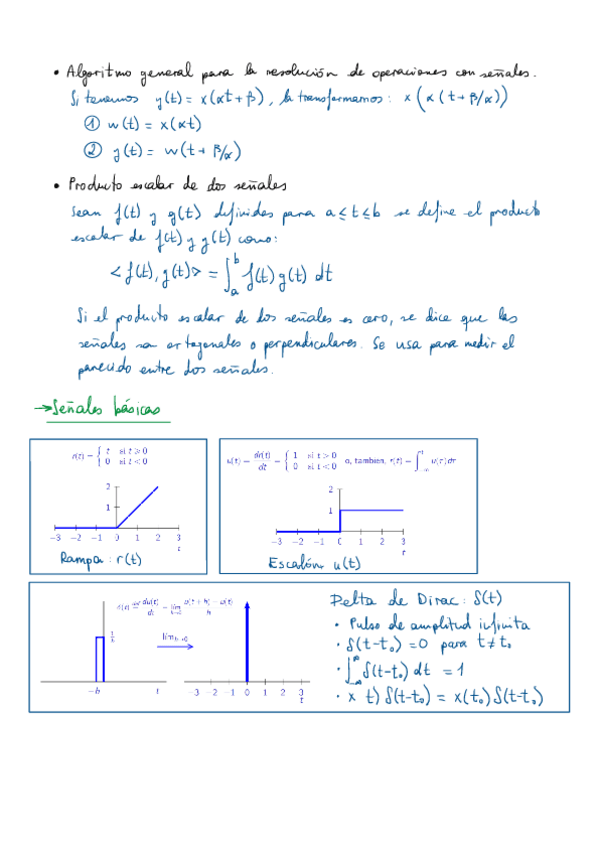 • Algoritmo general para la resolución de operaciones con señales.
Si tenemos y(t) = x(αt + β), la transformamos: x(α(t + β/α))
① w(t) = x(αt)
② y(t) = w(t + β/α)
• Producto escalar de dos señales
Sean f(t) y g(t) definidas para a ≤ t ≤ b se define el producto
escalar de f(t) y g(t) como:
<f(t), g(t)> = ∫_a^b f(t) g(t) dt
Si el producto escalar de dos señales es cero, se dice que las
señales son ortogonales o perpendiculares. Se usa para medir el
parecido entre dos señales.
→ Señales básicas
r(t) = { t si t ≥ 0
0 si t < 0
2
1
−3 −2 −1 0 1 2 3
t
Rampa: r(t)
u(t) = dr(t)/dt = { 1 si t > 0 o, tambien, r(t) = ∫_−∞^t u(τ)dτ
0 si t < 0
2
1
−3 −2 −1 0 1 2 3
t
Escalón: u(t)
δ(t) def= du(t)/dt = lim_h→0 u(t + h) − u(t) / h
−h t
lim_h→0
−3 −2 −1 0 1 2 3
t
Delta de Dirac: δ(t)
• Pulso de amplitud infinita
• δ(t−t₀) = 0 para t ≠ t₀
• ∫_−∞^∞ δ(t−t₀) dt = 1
• x t) δ(t−t₀) = x(t₀) δ(t−t₀)